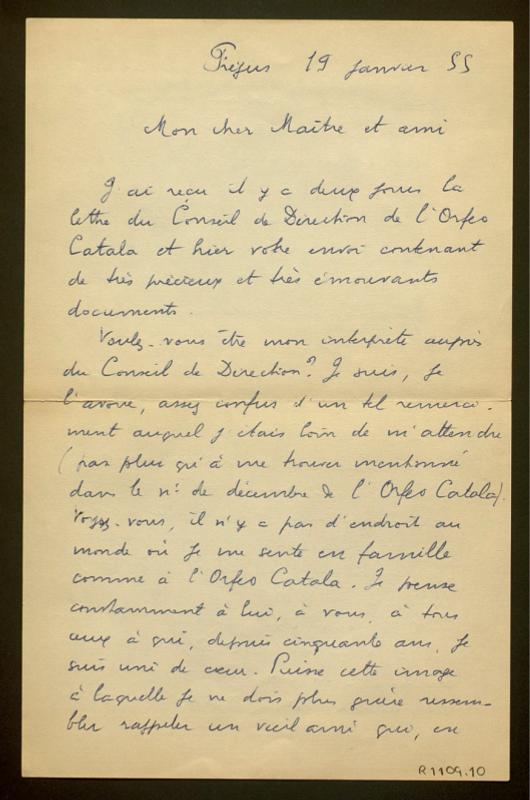 Fréjus 19 janvier 55
Mon cher Maître et ami
J'ai reçu il y a deux jours la
lettre du Conseil de Direction de l'Orfeo
Catala et hier votre envoi contenant
de très précieux et très émouvants
documents.
Voulez-vous être mon interprète auprès
du Conseil de Direction? Je suis, je
l'avoue, assez confus d'un tel remerci-
ment auquel j'étais loin de m'attendre
(pas plus qu'à me trouver mentionné
dans le n° de décembre de l'Orfeo Catala).
Voyez-vous, il n'y a pas d'endroit au
monde où je me sente en famille
comme à l'Orfeo Catala. Je pense
constamment à lui, à vous, à tous
ceux à qui, depuis cinquante ans, je
suis uni de cœur. Puisse cette image
à laquelle je ne dois plus guère ressem-
bler rappeler un vieil ami qui, en
R1109.10